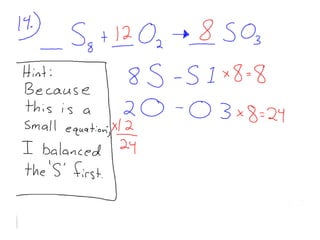 14.) __ S₈ + 12 O₂ → 8 SO₃
Hint:
Because
this is a
small equation,
I balanced
the 'S' first.
8 S - S 1 ×8=8
2 O - O 3 ×8=24
×12
24